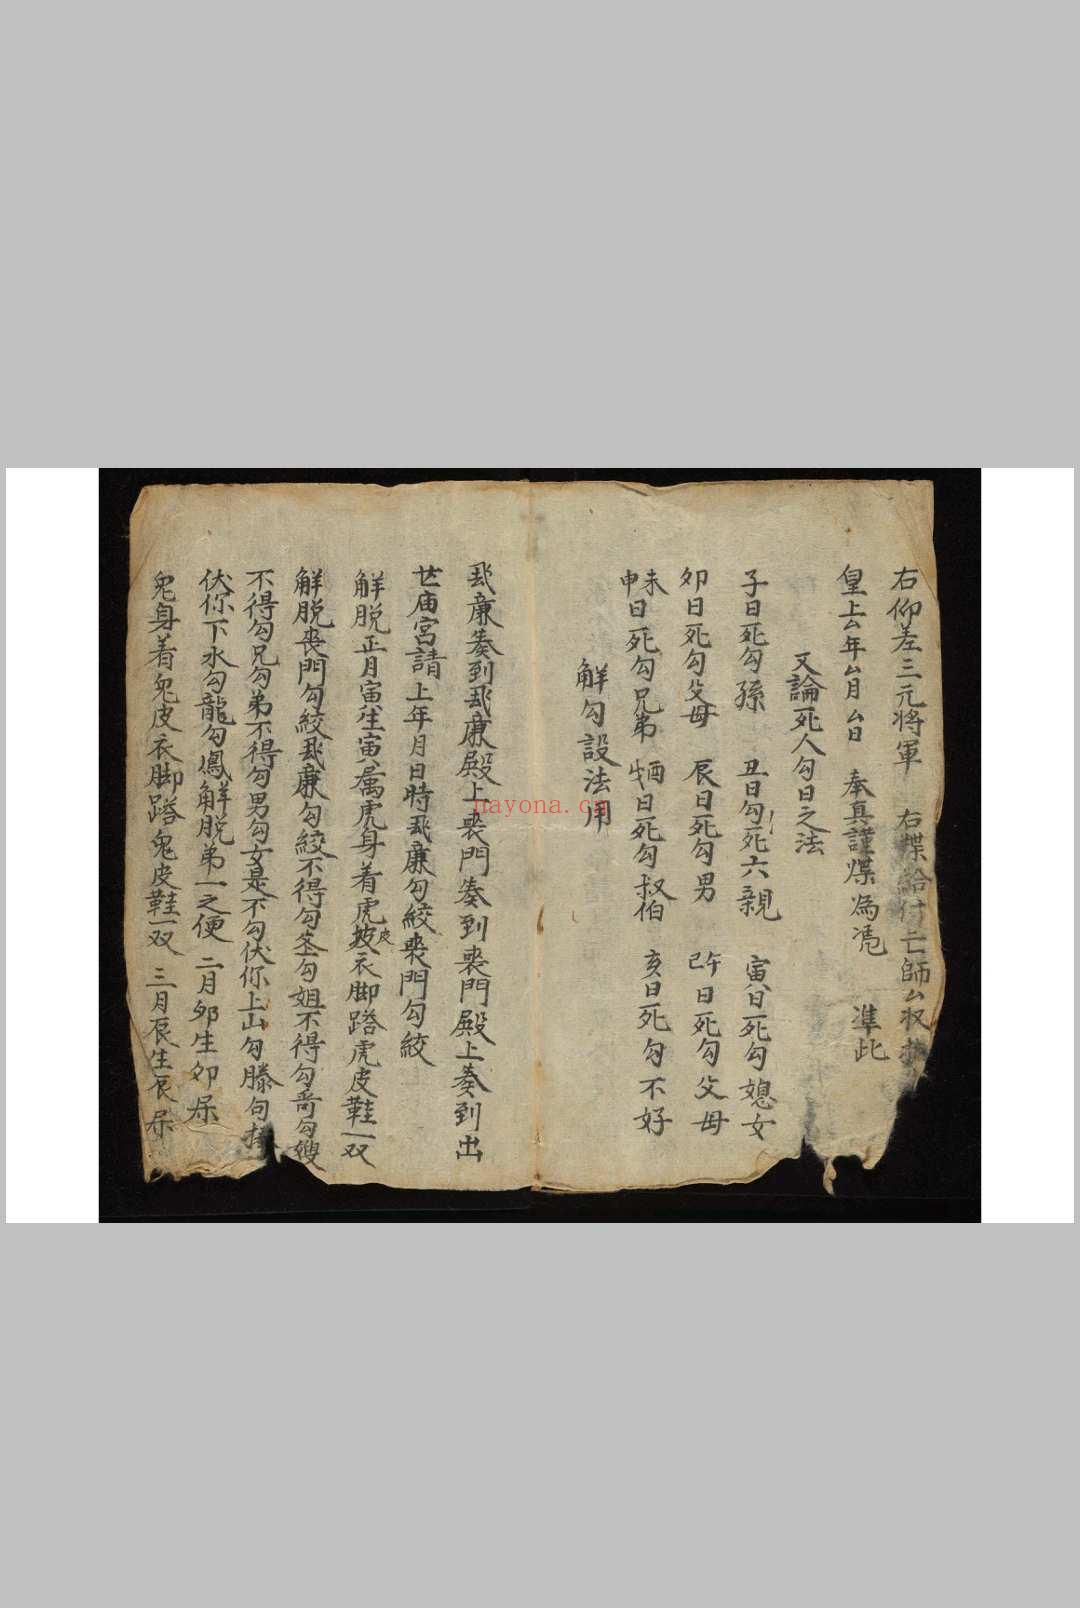 右仰差三元将軍 右牒給付亡師厶収
皇上厶年厶月厶日 奉真謹煤為凴 準此
又論死人勾日之法
子日死勾孫 丑日勾死六親 寅日死勾媳女
夘日死勾父母 辰日死勾男 己午日死勾父母
未申日死勾兄弟 日死勾叔伯 亥日死勾不好
解勾設法用
廉奏到廉殿上喪門奏到喪門殿上奏到出
廟宮請上年月日時廉勾絞喪門勾絞
解脱正月寅生寅属虎身着虎皮衣脚踏虎皮鞋一双
解脱喪門勾絞廉勾絞不得勾勾姐不得勾哥勾嫂
不得勾兄勾弟不得勾男勾女是不勾伏你上山勾滕句
伏你下水勾龍勾鳳解脱弟一之便 二月夘生夘
兔身着兔皮衣脚踏兔皮鞋一双 三月辰生辰
nayona.cn